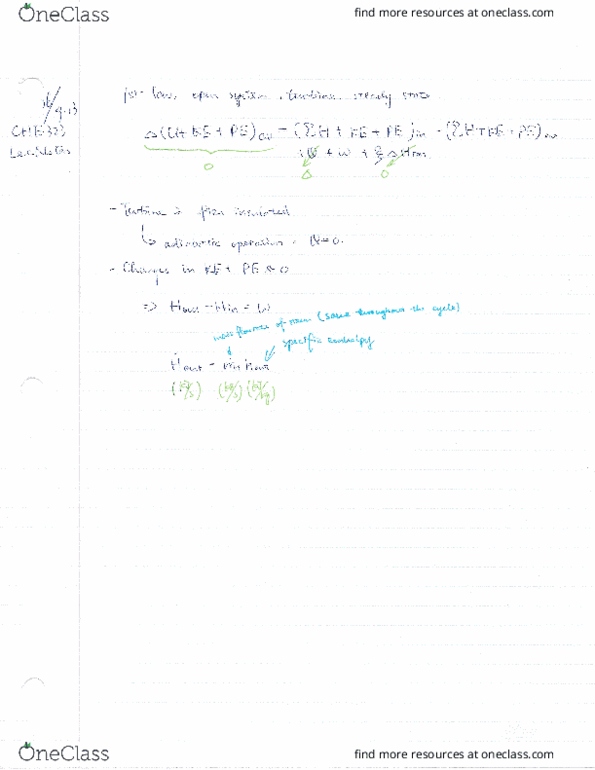 OneClass
find more resources at oneclass.com
1st law, open system, turbine, steady state
Δ(ΣH + KE + PE)cv = (ΣH + KE + PE)in - (ΣH + KE + PE)out
+ Q + W + ΣΔHrxn
0
0
- Turbine often insulated
↳ adiabatic operation, Q=0.
- Changes in KE + PE ≈ 0
=> Hout - Hin = W
mass flowrate of steam (same throughout the cycle)
specific enthalpy
Hout = m Hout
(kJ/s) (kg/s)(kJ/kg)
OneClass
find more resources at oneclass.com